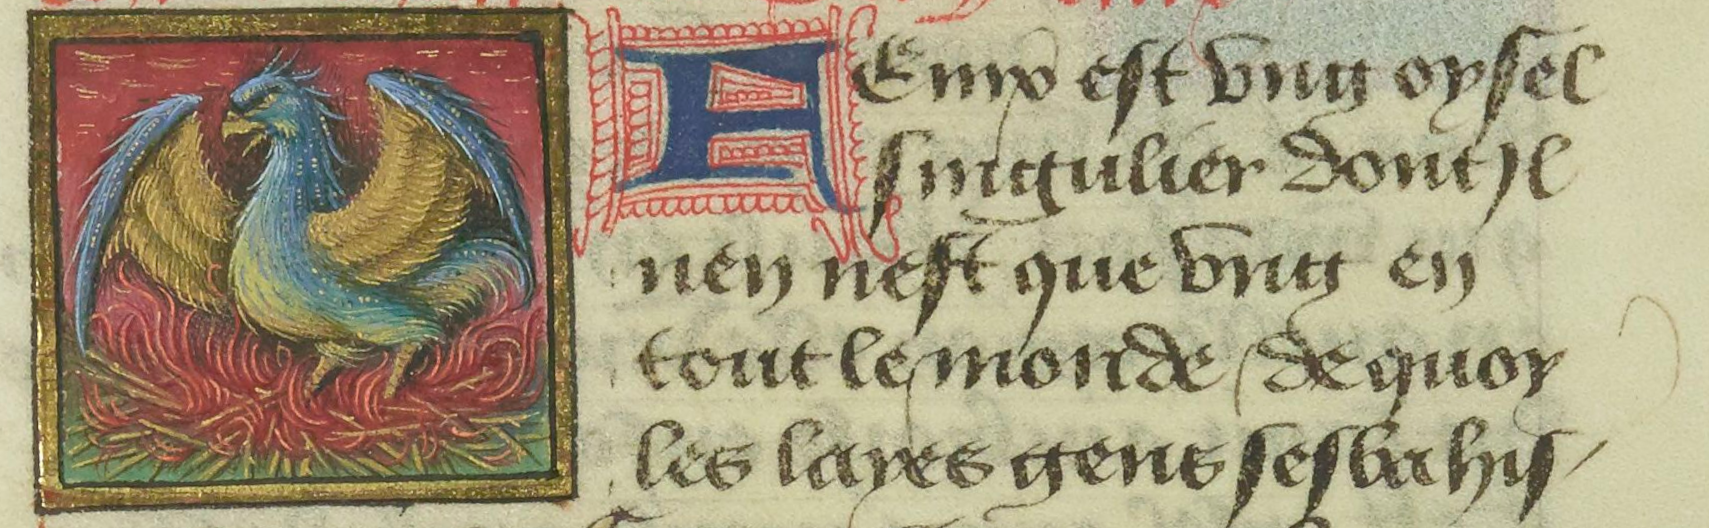 FEnix est vng oysel
singulier dont jl
nen nest que vng en
tout le monde / de quoy
les layes gens sesbahis/